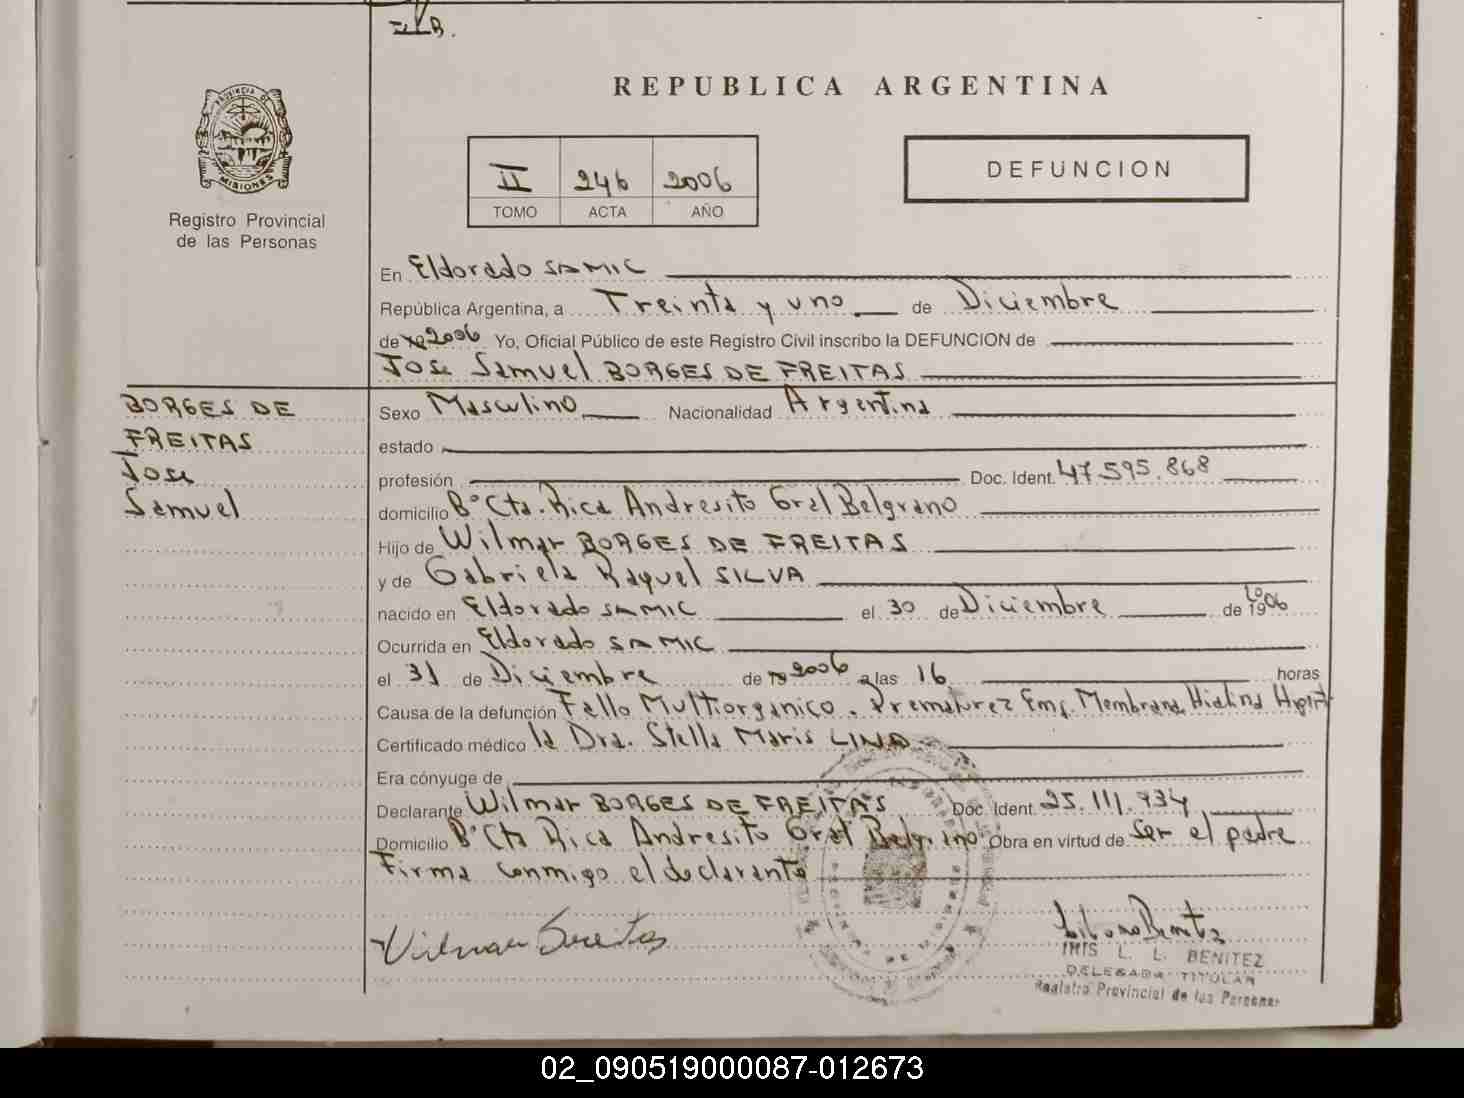 B.
REPUBLICA ARGENTINA
PROVINCIA DE
MISIONES
Registro Provincial
de las Personas
II 246 2006
TOMO ACTA AÑO
DEFUNCION
En Eldorado SAMIC
República Argentina, a Treinta y uno de Diciembre
de 2006 Yo, Oficial Público de este Registro Civil inscribo la DEFUNCION de
Jose Samuel BORGES DE FREITAS
BORGES DE
FREITAS
Jose
Samuel
Sexo Masculino Nacionalidad Argentina
estado
profesión Doc. Ident. 47.595.868
domicilio B° Cta. Rica Andresito Gral Belgrano
Hijo de Wilmar BORGES DE FREITAS
y de Gabriela Raquel SILVA
nacido en Eldorado SAMIC el 30 de Diciembre de 2006
Ocurrida en Eldorado SAMIC
el 31 de Diciembre de 2006 a las 16 horas
Causa de la defunción Fallo Multiorganico. Prematurez Enf. Membrana Hialina
Certificado médico la Dra. Stella Maris LINO
Era cónyuge de
Declarante Wilmar BORGES DE FREITAS Doc. Ident. 25.111.934
Domicilio B° Cta Rica Andresito Gral Belgrano Obra en virtud de Ser el padre
Firma conmigo el declarante
IRIS L. L. BENITEZ
DELEGADA TITULAR
Registro Provincial de las Personas
02_090519000087-012673